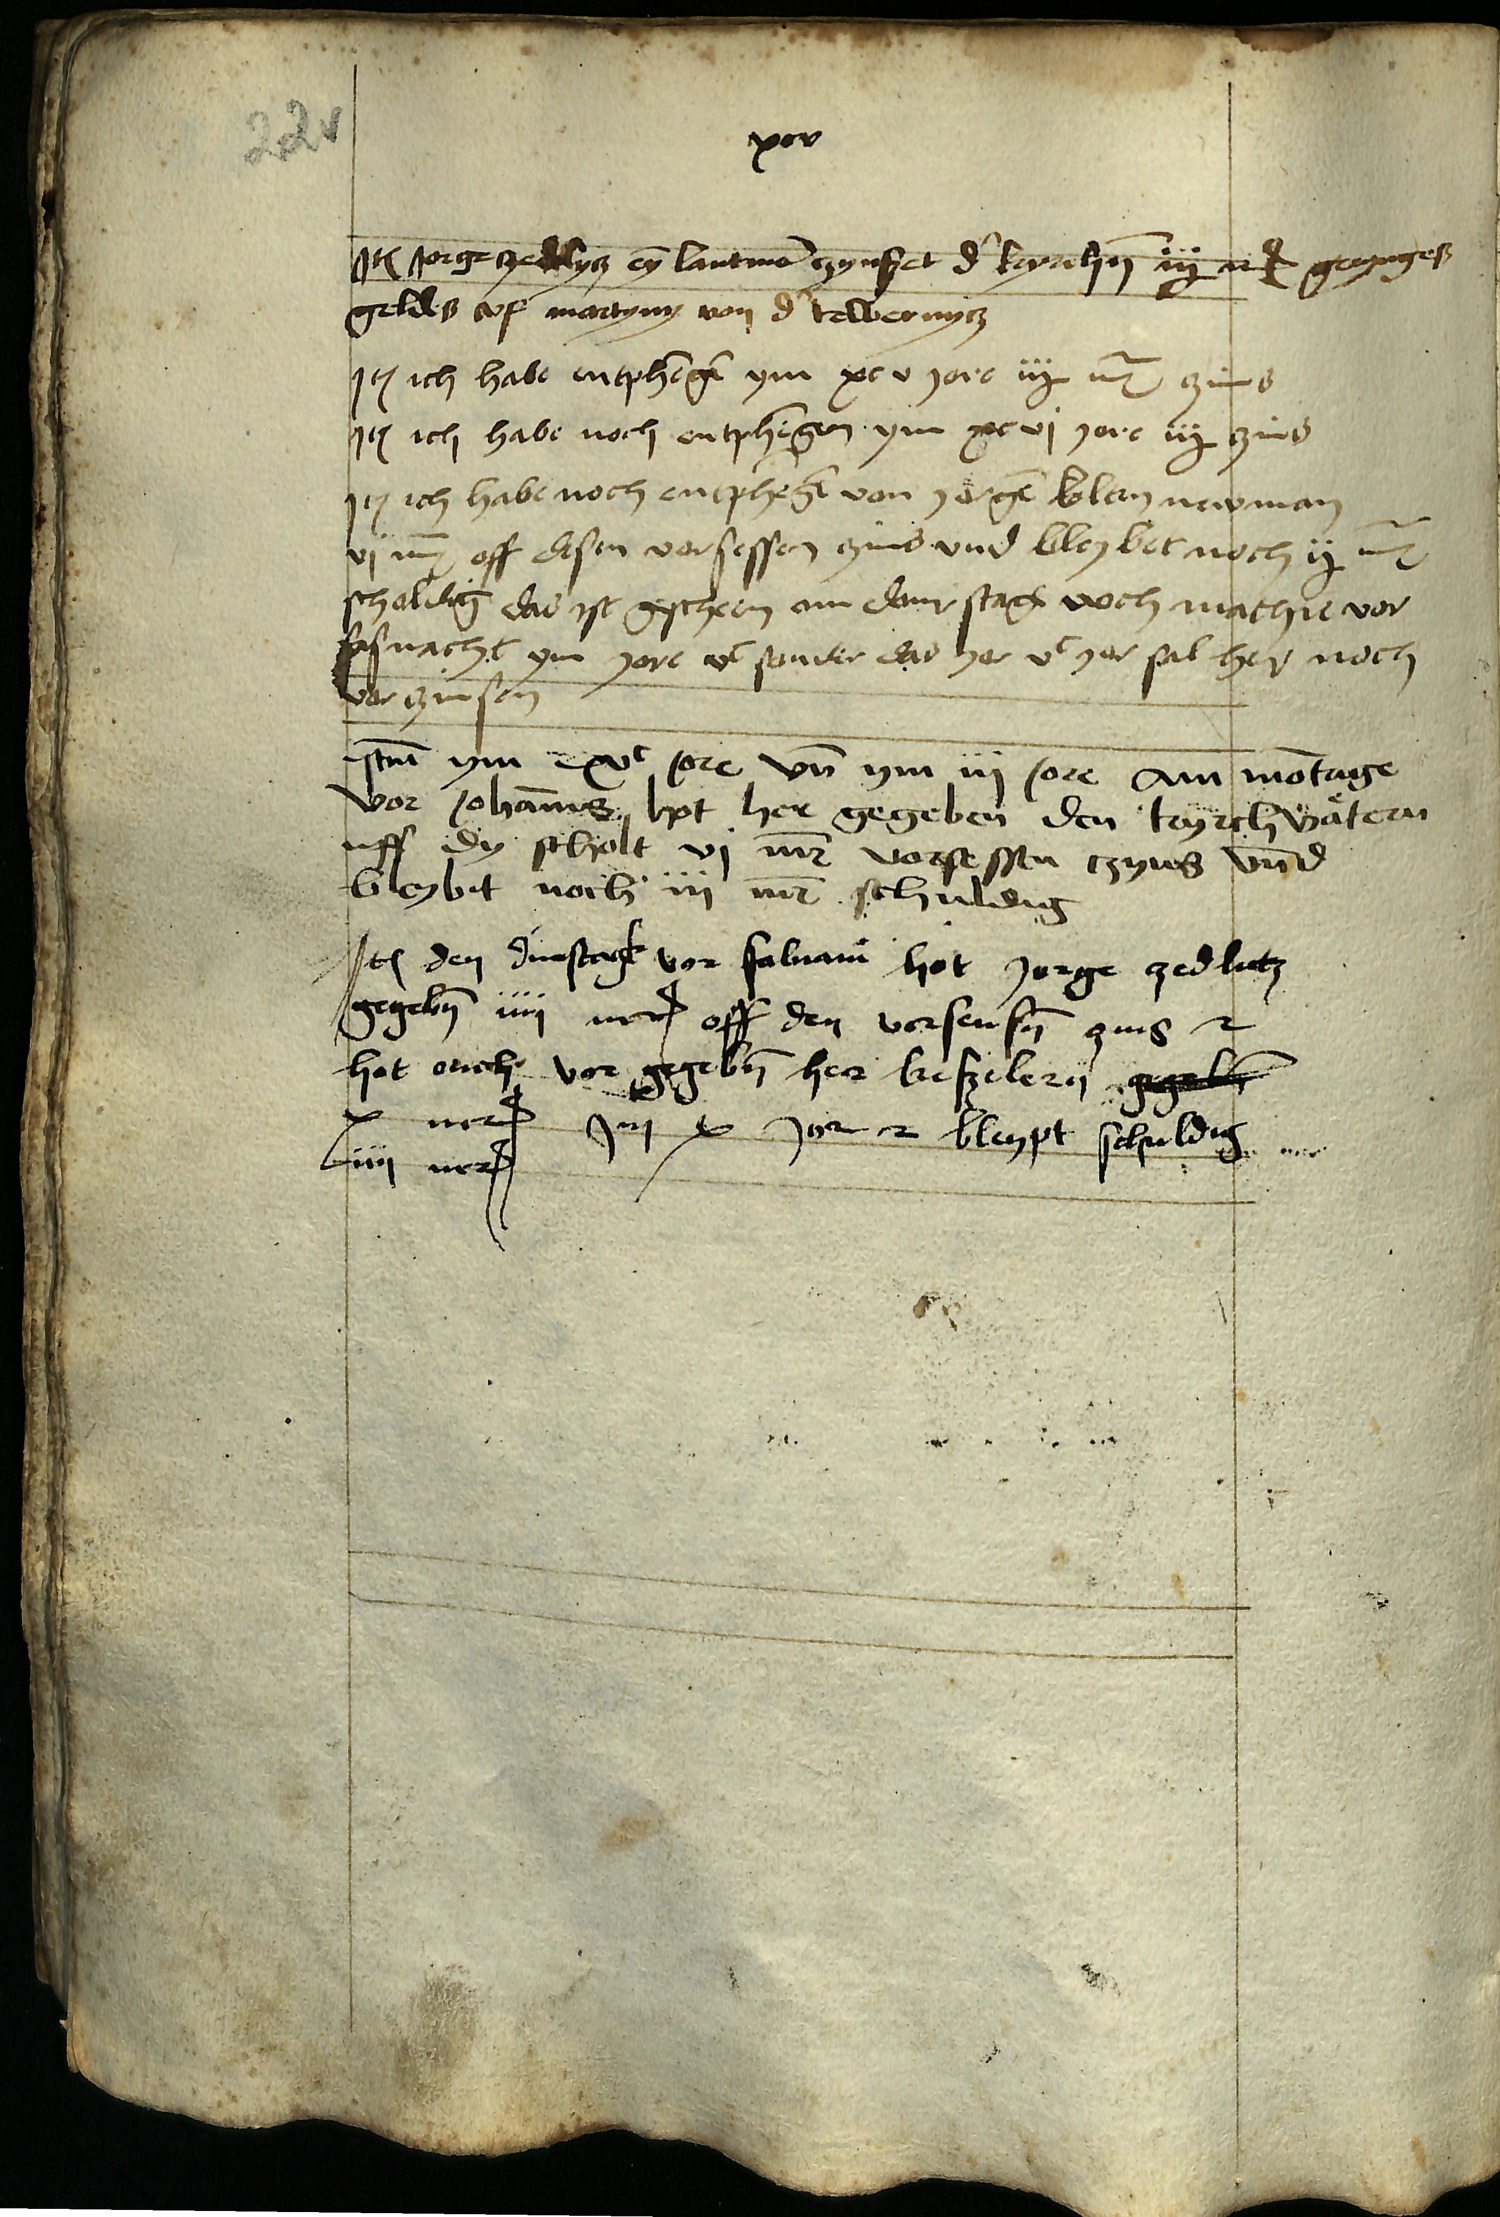 22v
xcv
Jtem Jorge czedlycz ey lantma czynszet d' kyrchn iij mrk gerynges
geldes vf martyny von d' kelbernycz
Jtem ich habe entphege ym xc v jore iij mr czins
Jtem ich habe noch entphegen ym xc vj jore iij czins
Jtem ich habe noch entphege von jorge klem newman
vj mr off disen vorsessen czins vnd bleybet noch ij mr
scholdig das ist geschen am donrstag noch mathie vor
fasnacht ym jore vc sonder das jor vc jor sal her noch
vorczinsen
Jtem ym xvc jore vn ym iij jore am montage
vor johannis hot her gegeben den kyrchvätern
uff dy scholt vj mr vorsessen czyns vnd
bleybit noch iij mr schuldig
Jtem den dinstagk vor hot jorge zedlitz
gegebn iiij mrg off den vorsensn zins
hot ouch vor gegebn her keszelern gegebn
x mrg Jm x jor bleypt schuldig
iiij mrg